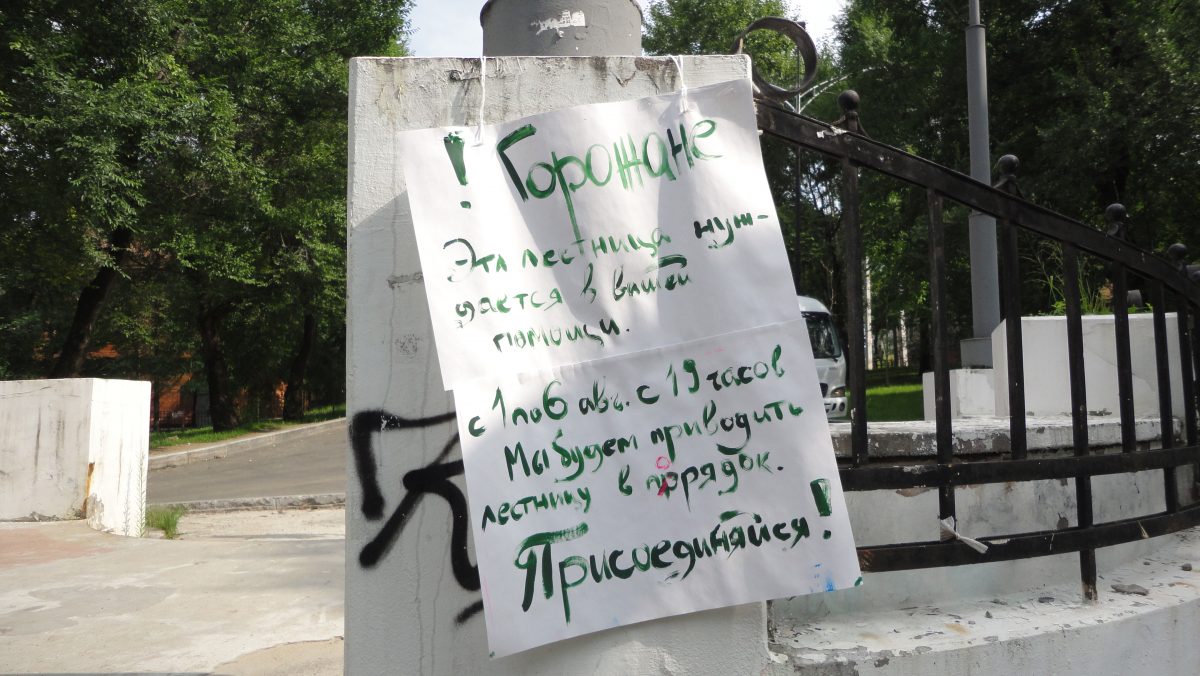 ! Горожане
Эта лестница нуж-
дается в вашей
помощи.
с 1 по 6 авг. с 19 часов
Мы будем приводить
лестницу в порядок.
Присоединяйся!